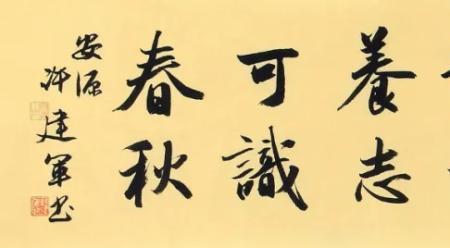 養志
可識
春秋
安源
許建軍书